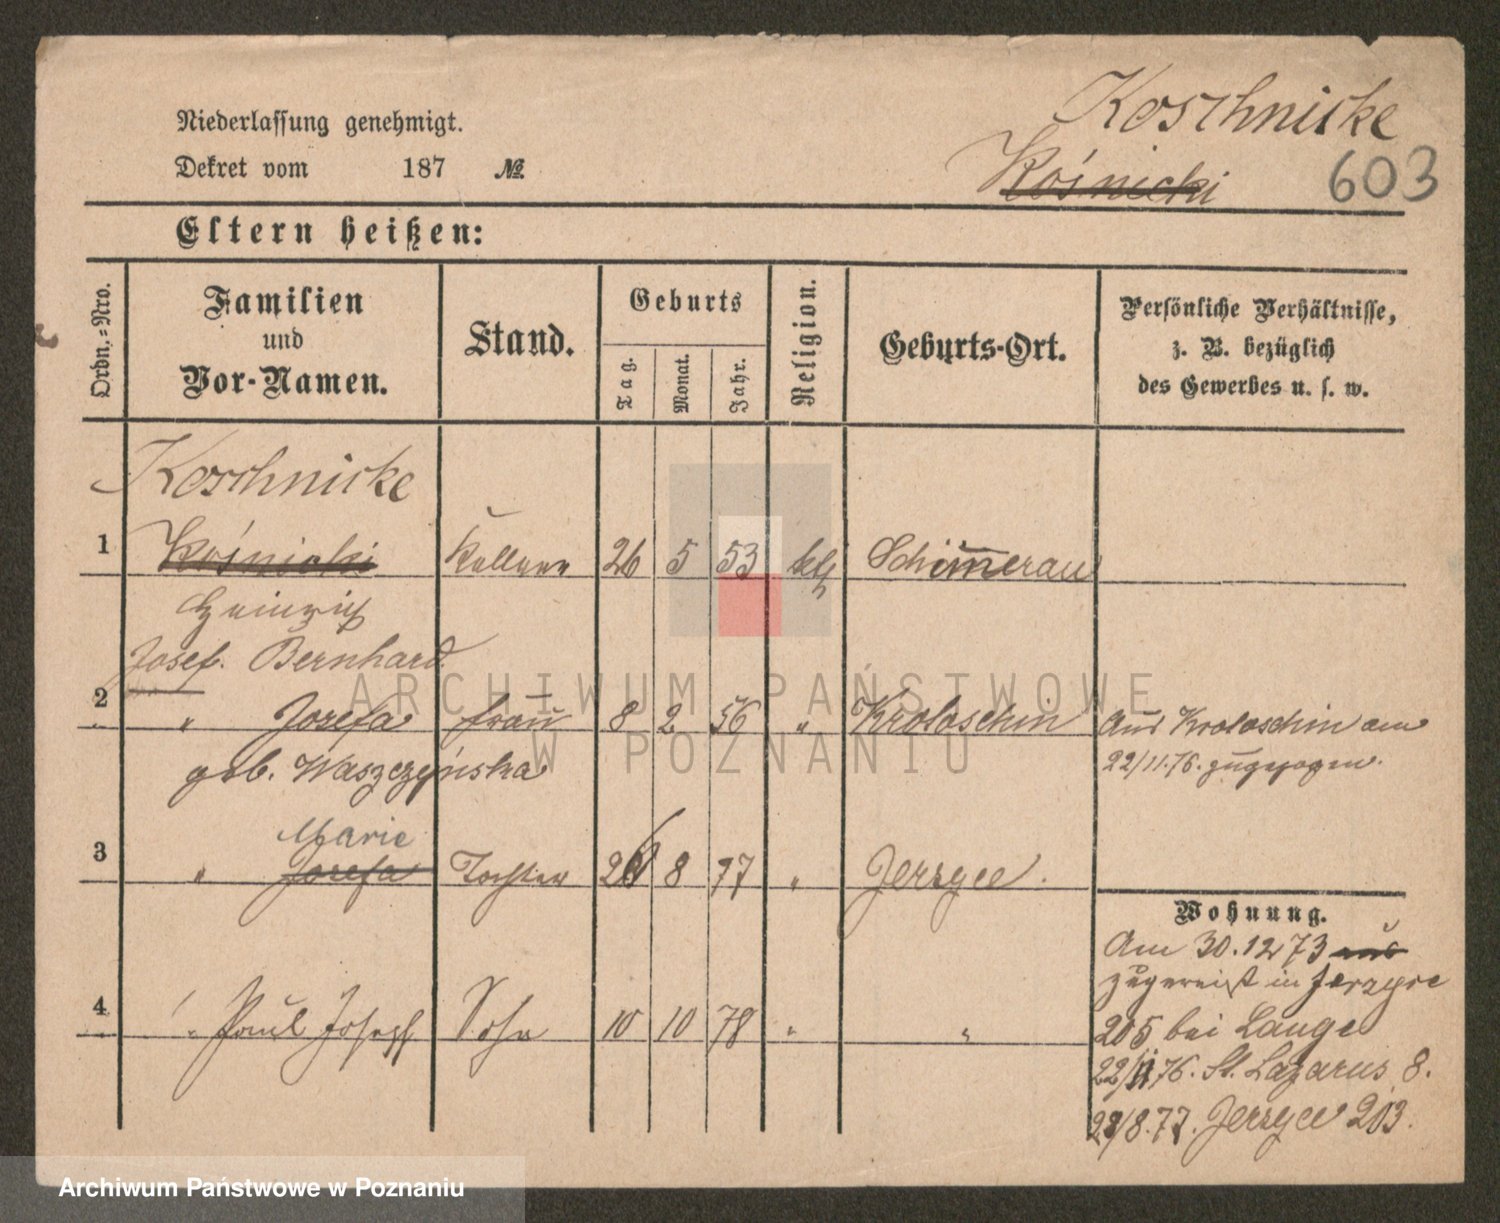 Koschnicke
Niederlassung genehmigt.
Dekret vom 187 №.
Kośnicki 603
Eltern heißen:
Ordn.-Nro.
Familien
und
Vor-Namen.
Stand.
Geburts
Tag.
Monat.
Jahr.
Religion.
Geburts-Ort.
Persönliche Verhältnisse,
z. B. bezüglich
des Gewerbes u. s. w.
Koschnicke
1 Kośnicki Kellner 26 5 53 kth Schimerau
Heinrich
Josef. Bernhard.
2 " Jozefa Frau 8 2 56 " Krotoschin Aus Krotoschin am
geb. Waszczyńska 22/11.76. zugezogen.
Marie
3 " Josefa Tochter 8 77 " Jerzyce.
Wohnung.
Am 30.12 73 aus
zugereist in Jerzyce
4 " Paul Joseph Sohn 10 10 78 " "
205 bei Lange
22/11 76. St. Lazarus 8.
28/8.77. Jerzyce 203.
ARCHIWUM PAŃSTWOWE
W POZNANIU
Archiwum Państwowe w Poznaniu